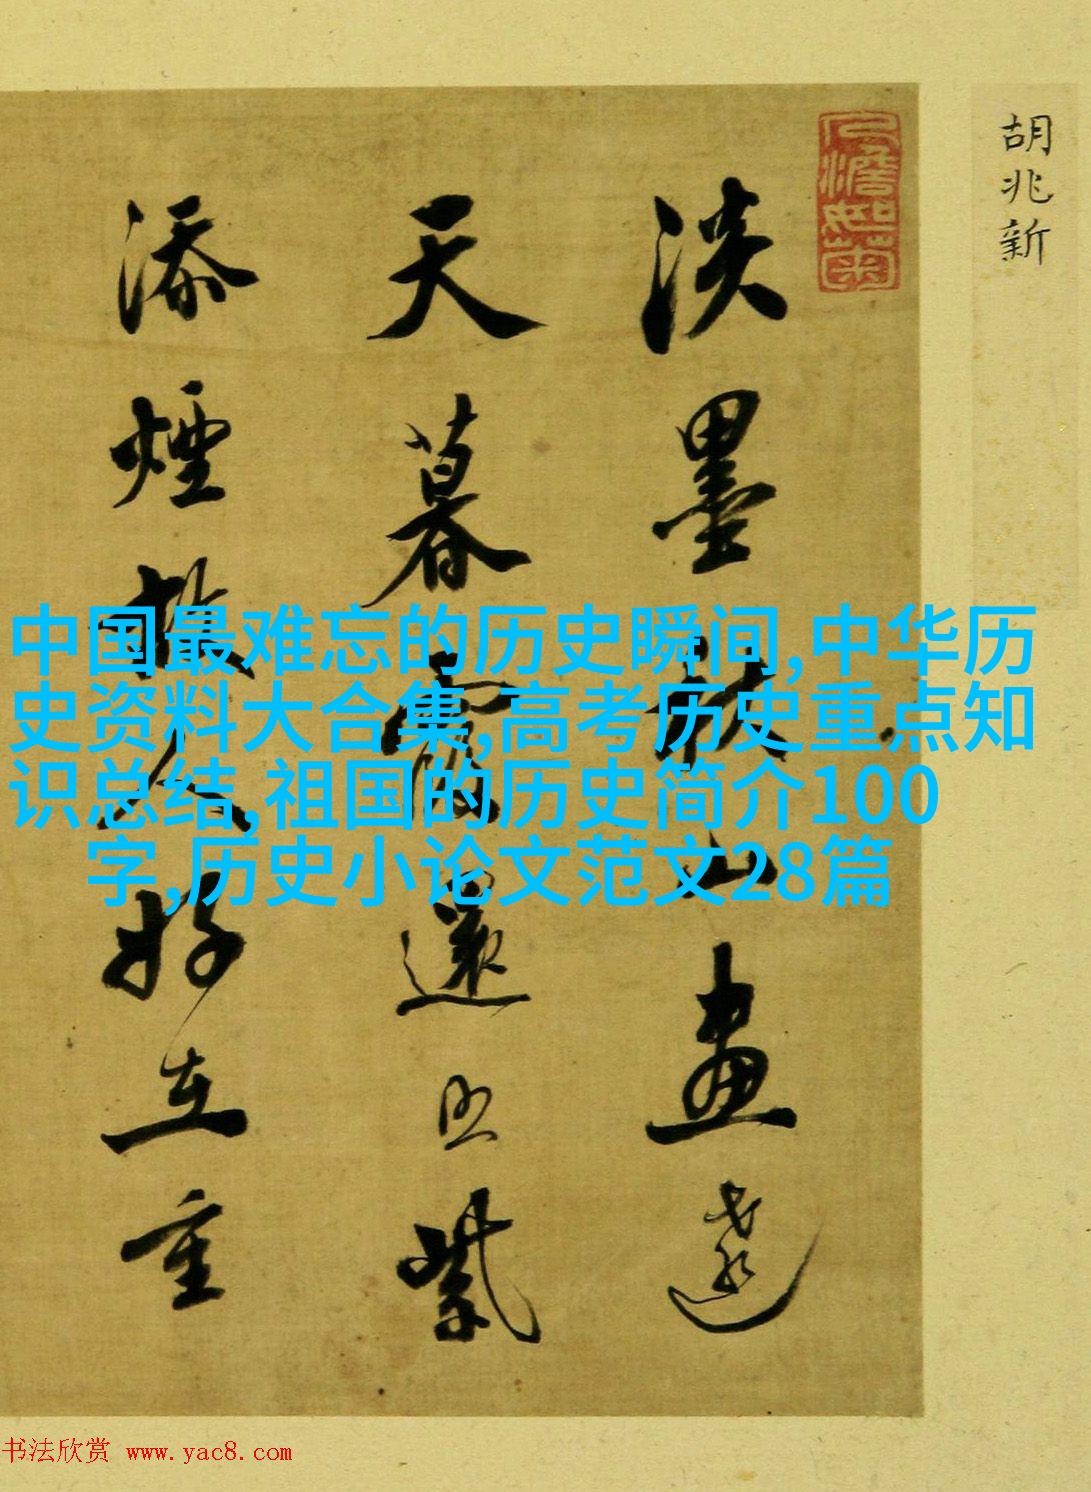 胡兆新
淡墨秋山畫遠
天暮霞還照紫
添煙故人好在重
中国最难忘的历史瞬间,中华历
史资料大合集,高考历史重点知
识总结,祖国的历史简介100
字,历史小论文范文28篇
书法欣赏 www.yac8.com